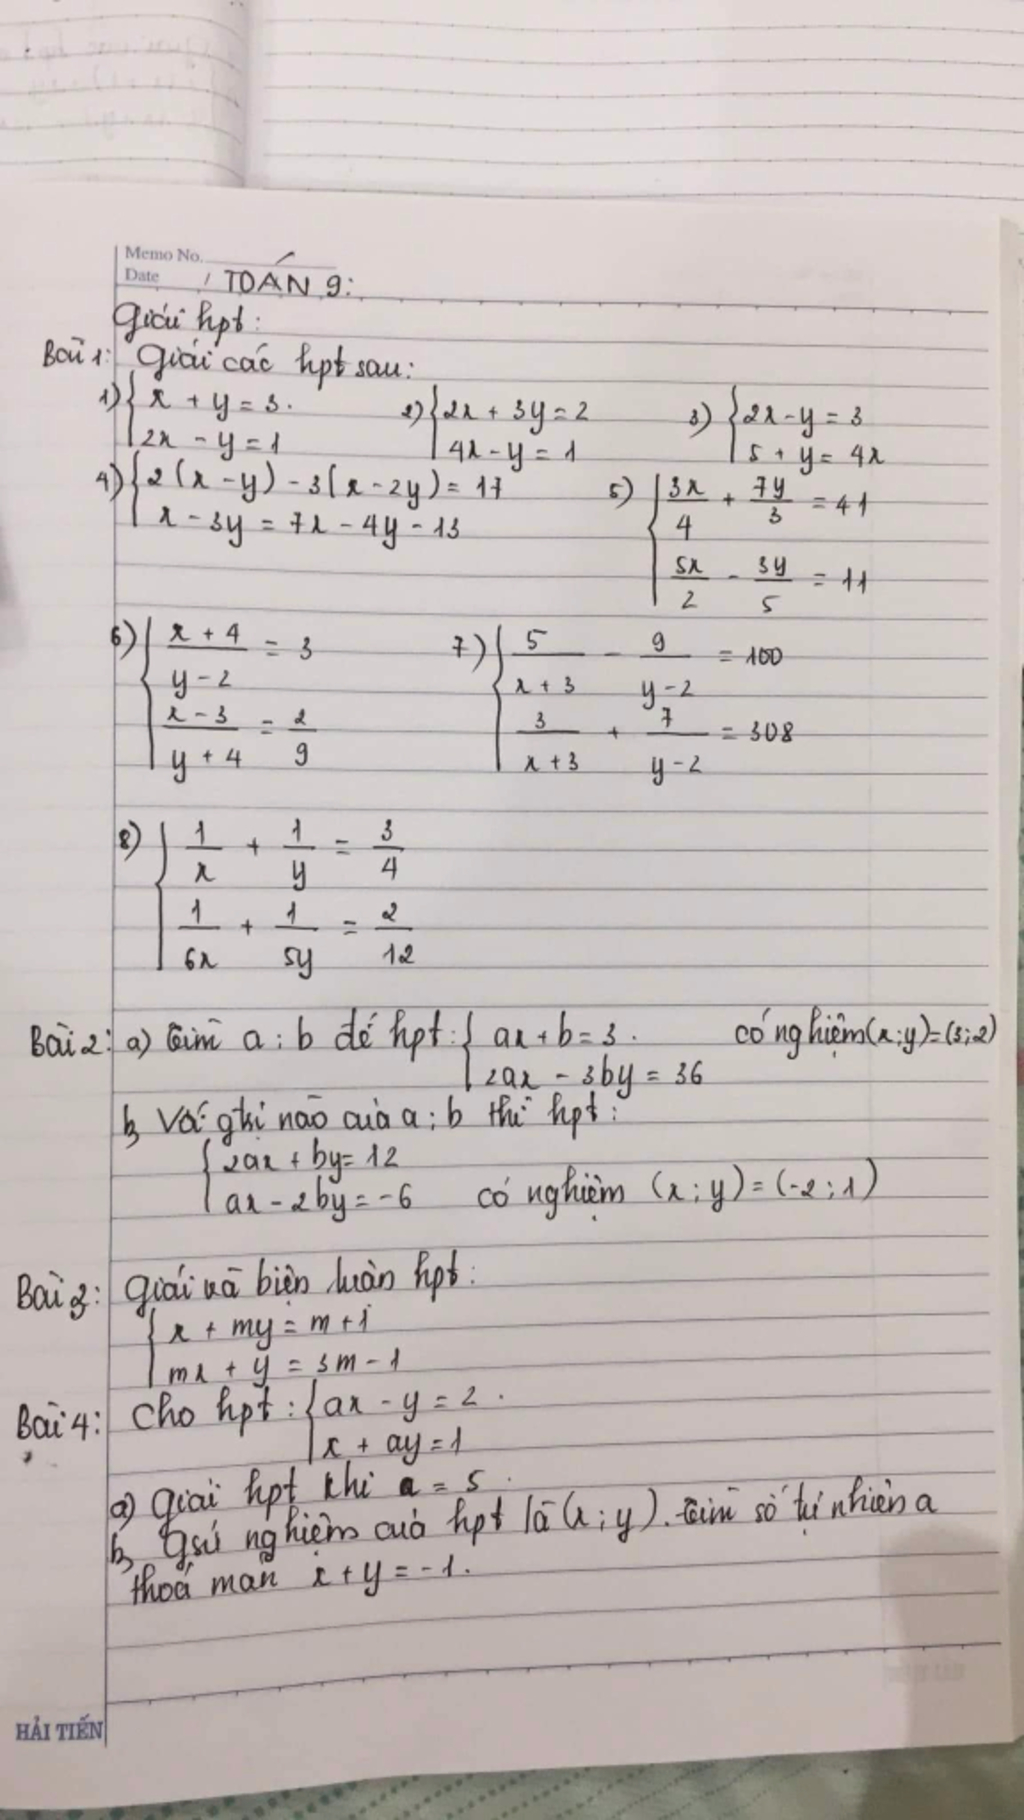 Memo No.
Date / TOÁN 9:
Giải hpt:
Bài 1: Giải các hpt sau:
1) { x + y = 3. 2) { 2x + 3y = 2 3) { 2x - y = 3
2x - y = 1 4x - y = 1 5 + y = 4x
4) { 2(x - y) - 3(x - 2y) = 17 5) { 3x/4 + 7y/3 = 41
x - 3y = 7x - 4y - 13
5x/2 - 3y/5 = 11
6) { x + 4 / y - 2 = 3 7) { 5 / x + 3 - 9 / y - 2 = 100
x - 3 / y + 4 = 2/9 3 / x + 3 + 7 / y - 2 = 308
8) { 1/x + 1/y = 3/4
1/6x + 1/5y = 2/12
Bài 2: a) Tìm a; b để hpt: { ax + b = 3. có nghiệm (x; y) = (3; 2)
2ax - 3by = 36
b, Với gtrị nào của a; b thì hpt:
{ 2ax + by = 12
ax - 2by = -6 có nghiệm (x; y) = (-2; 1)
Bài 3: Giải và biện luận hpt:
{ x + my = m + 1
mx + y = 3m - 1
Bài 4: Cho hpt: { ax - y = 2.
x + ay = 1
a) Giải hpt khi a = 5.
b, Gsử nghiệm của hpt là (x; y). Tìm số tự nhiên a
thoả mãn x + y = -1.
HẢI TIẾN